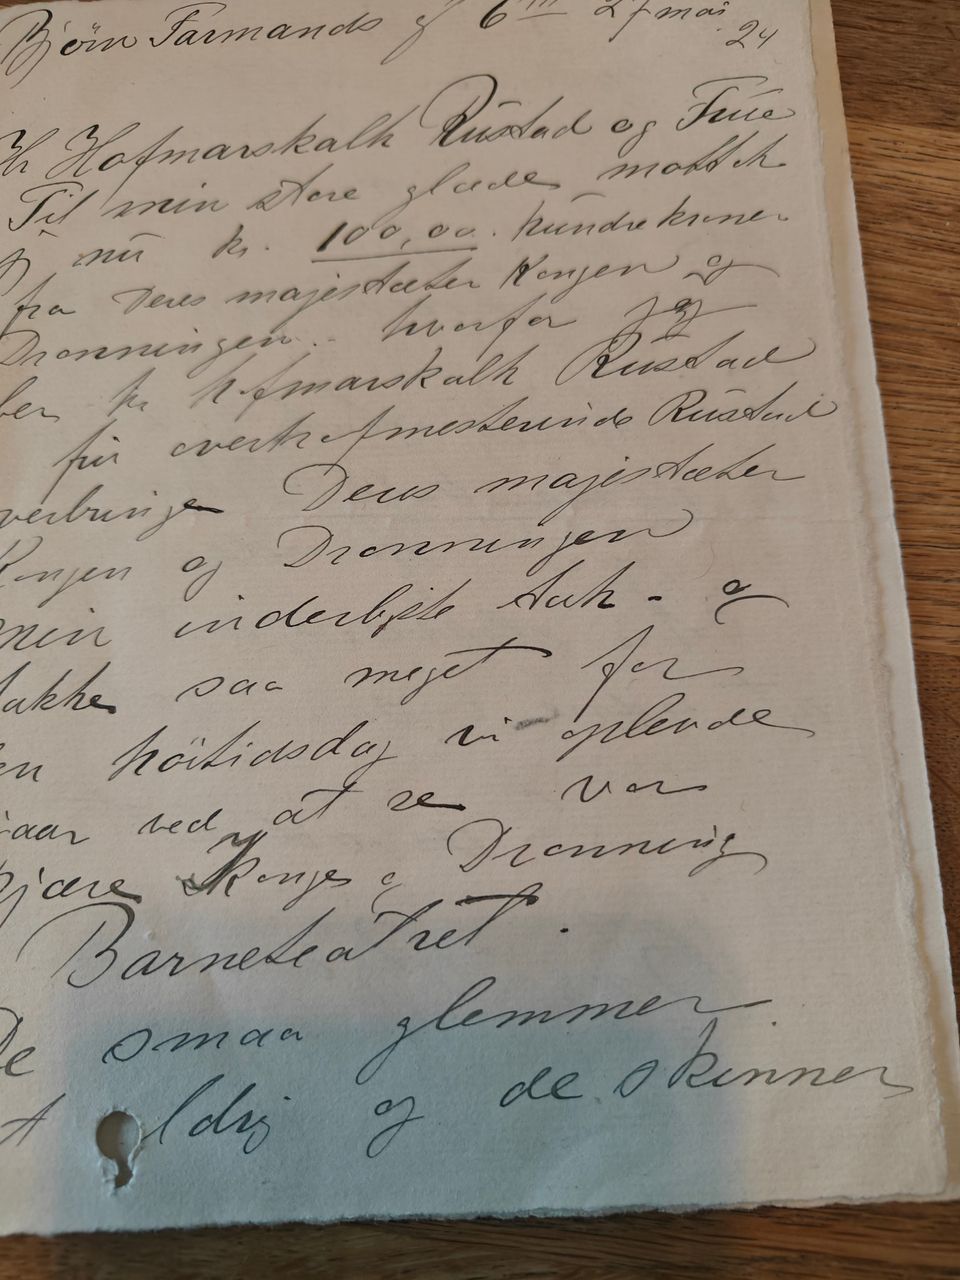 Bjørn Farmands g 6III 27 mai
24
Hr Hofmarskalk Rustad og Frue
Til min store glæde mottok
jeg nu kr. 100,00. hundre kroner
fra Deres majestæter Kongen og
Dronningen. hvorfor jeg
ber hr hofmarskalk Rustad
fru overhofmesterinde Rustad
overbringe Deres majestæter
Kongen og Dronningen
min inderligste tak - og
takke saa meget for
den höitidsdag vi oplevde
igaar ved at se vor
kjære Konge og Dronning
Barneteatret.
De smaa glemmer
t aldrig og de skinner